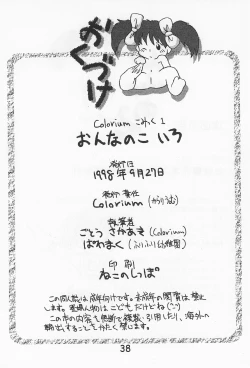 おくづけ
Colorium こみっく 1
おんなのこ いろ
発行日
1998年9月27日
発行 責任
Colorium (からりうむ)
執筆者
ごとう さやあき (Colorium)
ぱわまく (ふりふり幼稚園)
印刷
ねこのしっぽ
この同人誌は成年向けです。未成年の閲覧は禁止
します。登場人物は こども だけどね (^_^;)
この本の内容を無断で複製、引用したり、海外への
輸出をすることをかたく禁じます。
38